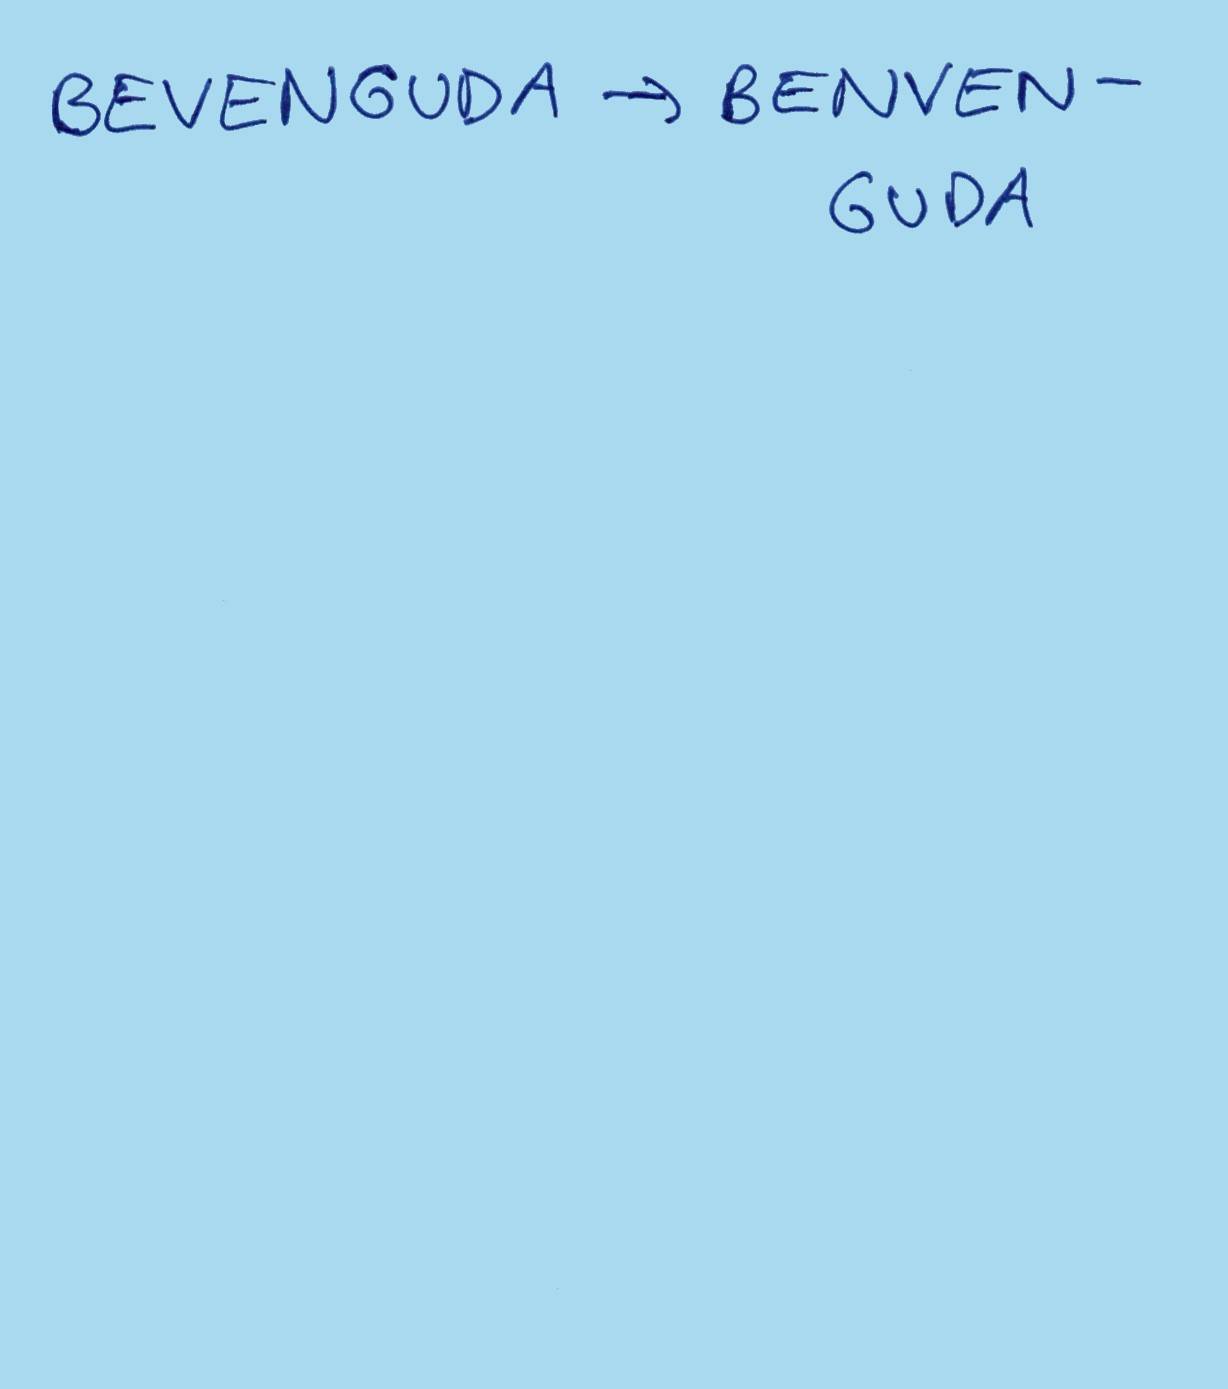 BEVENGUDA → BENVEN-
GUDA